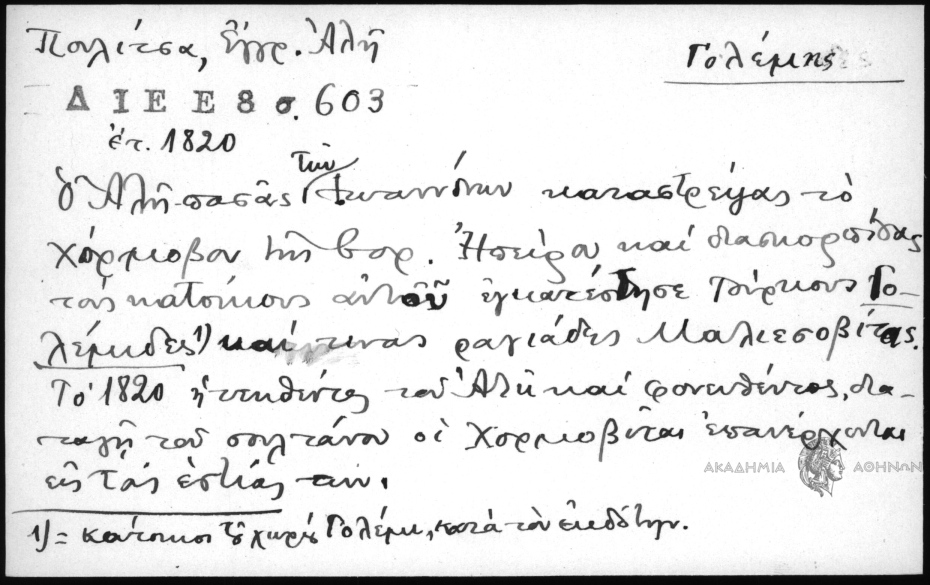 Πουλίτσα, Ἔγγρ. Ἀλῆ
Γολέμης
ΔΙΕΕ 8 σ. 603
ἐτ. 1820
Ὁ Ἀλῆ-πασᾶς τῶν Ἰωαννίνων καταστρέψας τὸ
Χόρμιοβον τῆς βορ. Ἠπείρου καὶ διασκορπίσας
τοὺς κατοίκους αὐτοῦ ἐγκατέστησε Τούρκους Γο-
λέμιδες 1) καί τινας ραγιάδες Μαλιεσοβίτας.
Τὸ 1820 ἡττηθέντος τοῦ Ἀλῆ καὶ φονευθέντος, δια-
ταγῇ τοῦ σουλτάνου οἱ Χορμιοβῖται ἐπανέρχονται
εἰς τὰς ἑστίας των.
1) = κάτοικοι τοῦ χωριοῦ Γολέμι, κατὰ τὸν ἐκδότην.
ΑΚΑΔΗΜΙΑ ΑΘΗΝΩΝ